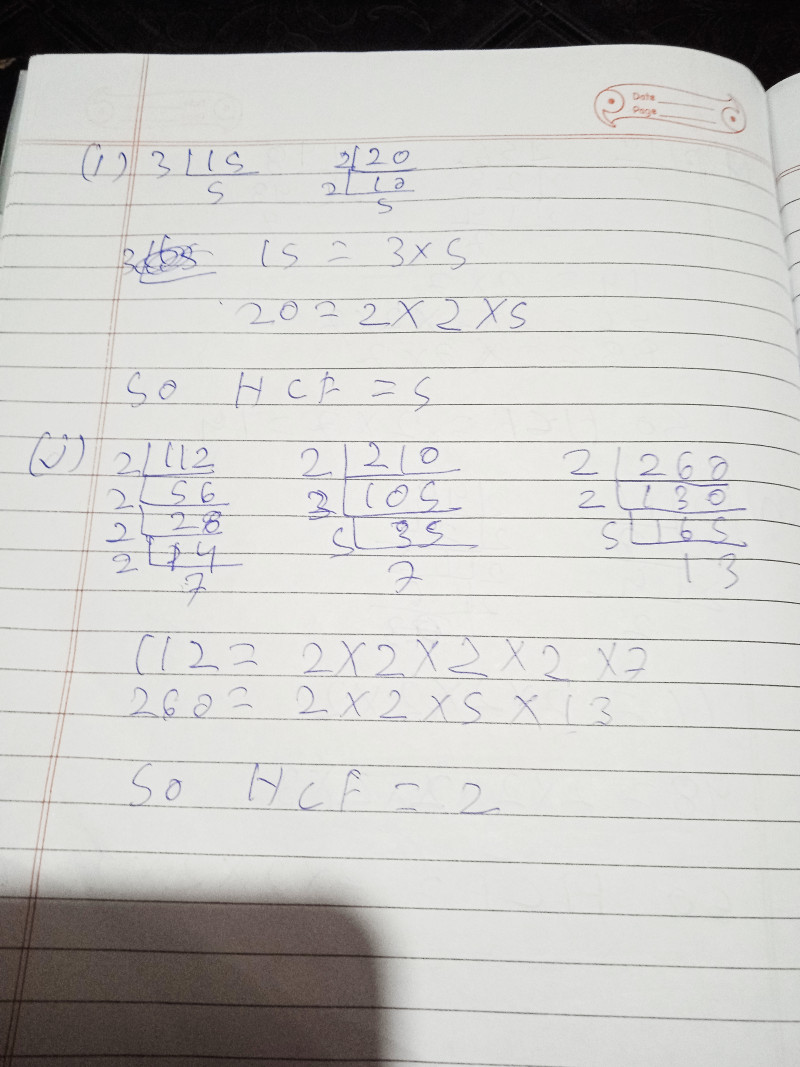 Date
Page
(i) 3 15 2 20
5 2 10
5
15 = 3 × 5
20 = 2 × 2 × 5
So HCF = 5
(j) 2 112 2 210 2 260
2 56 3 105 2 130
2 28 5 35 5 165
2 14 7 13
7
112 = 2 × 2 × 2 × 2 × 7
260 = 2 × 2 × 5 × 13
So HCF = 2